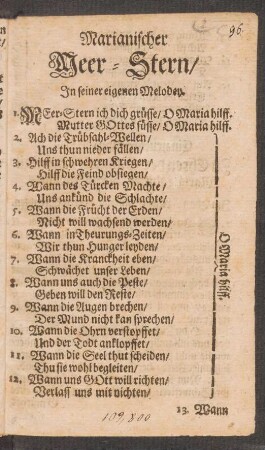 96.
Marianischer
Meer-Stern/
In seiner eigenen Melodey.
1. MEer-Stern ich dich grüsse/ O Maria hilff.
Mutter GOttes süsse/ O Maria hilff.
2. Ach die Trübsahl-Wellen/
Uns thun nieder fällen/
3. Hilff in schwehren Kriegen/
Hilff die Feind obsiegen/
4. Wann des Türcken Machte/
Uns ankünd die Schlachte/
5. Wann die Frücht der Erden/
Nicht will wachsend werden/
6. Wann in Theurungs-Zeiten/
Wir thun Hunger leyden/
7. Wann die Kranckheit eben/
Schwächet unser Leben/
8. Wann uns auch die Peste/
Geben will den Reste/
9. Wann die Augen brechen/
Der Mund nicht kan sprechen/
10. Wann die Ohrn verstopffet/
Und der Todt anklopffet/
11. Wann die Seel thut scheiden/
Thu sie wohl begleiten/
12. Wann uns GOtt will richten/
Verlass uns mit nichten/
O Maria hilff.
13. Wann
109,800